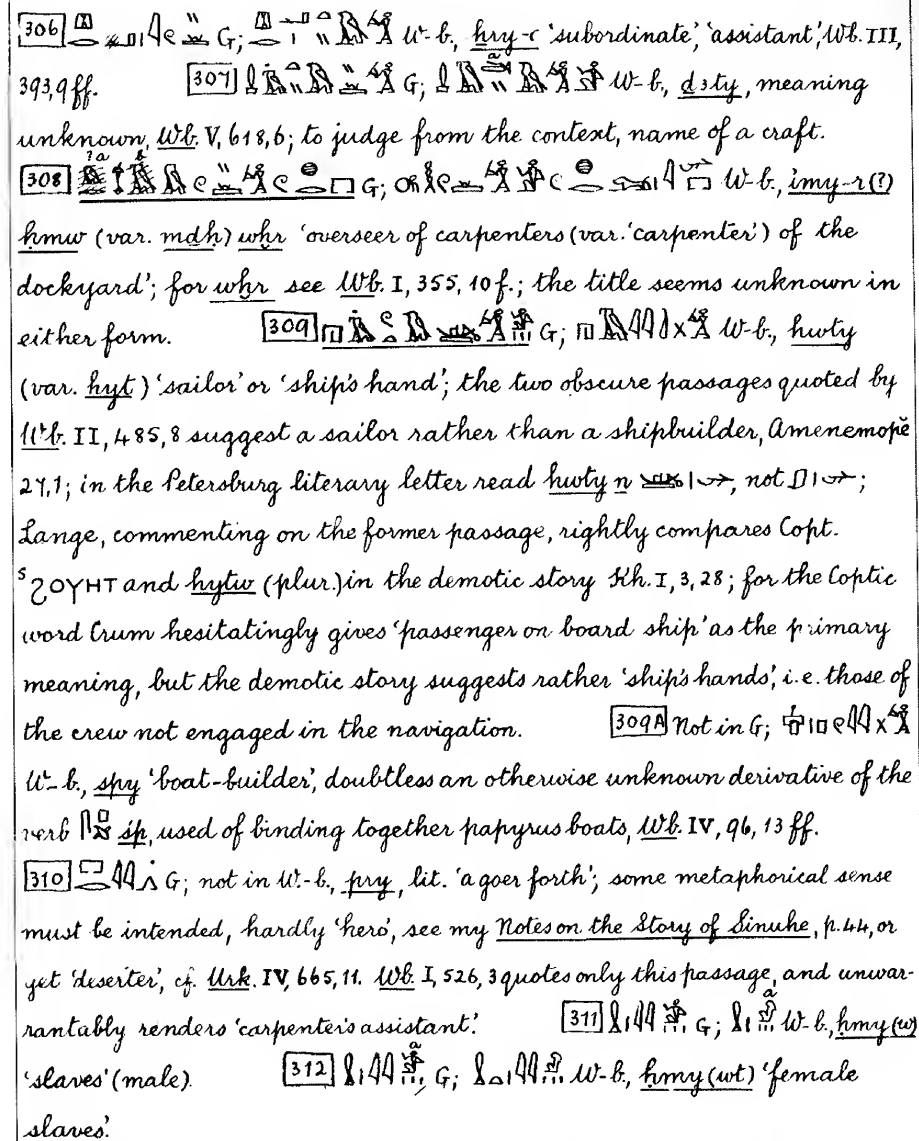 306 G; W-b., ẖry-ꜥ 'subordinate', 'assistant', Wb. III,
393,9 ff. 307 G; W-b., ḏꜣty, meaning
unknown, Wb. V, 618,6; to judge from the context, name of a craft.
308 G; W-b., imy-r (?)
ḥmw (var. mdḥ) wḫr 'overseer of carpenters (var. 'carpenter') of the
dockyard'; for wḫr see Wb. I, 355, 10 f.; the title seems unknown in
either form. 309 G; W-b., hwty
(var. hyt) 'sailor' or 'ship's hand'; the two obscure passages quoted by
Wb. II, 485,8 suggest a sailor rather than a shipbuilder, Amenemopĕ
27,1; in the Petersburg literary letter read hwty n , not ;
Lange, commenting on the former passage, rightly compares Copt.
S ϨΟΥΗΤ and hytw (plur.) in the demotic story Kh. I, 3, 28; for the Coptic
word Crum hesitatingly gives 'passenger on board ship' as the primary
meaning, but the demotic story suggests rather 'ship's hands', i.e. those of
the crew not engaged in the navigation. 309A Not in G;
W-b., spy 'boat-builder', doubtless an otherwise unknown derivative of the
verb sp, used of binding together papyrus boats, Wb. IV, 96, 13 ff.
310 G; not in W-b., pry, lit. 'a goer forth'; some metaphorical sense
must be intended, hardly 'hero', see my Notes on the Story of Sinuhe, p. 44, or
yet 'deserter', cf. Urk. IV, 665, 11. Wb. I, 526, 3 quotes only this passage, and unwar-
rantably renders 'carpenter's assistant'. 311 G; W-b., ḥmy(w)
'slaves' (male). 312 G; W-b., ḥmy(wt) 'female
slaves'.